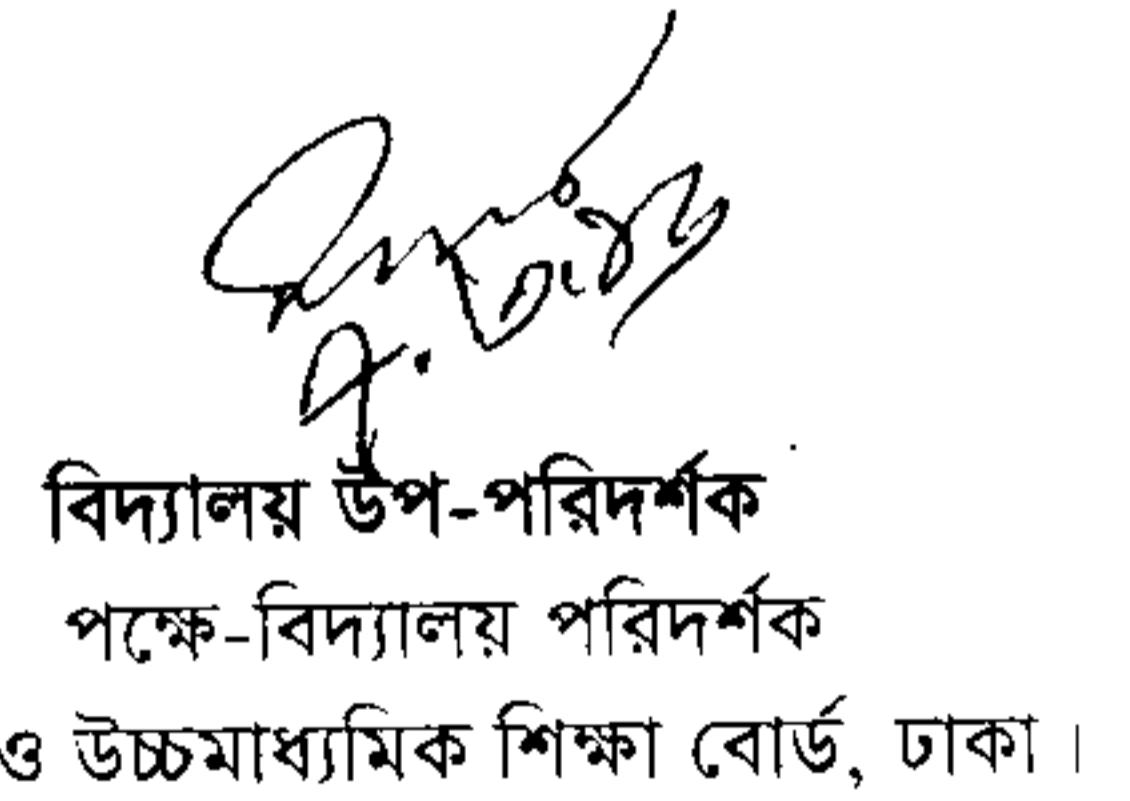 বিদ্যালয় উপ-পরিদর্শক
পক্ষে-বিদ্যালয় পরিদর্শক
ও উচ্চমাধ্যমিক শিক্ষা বোর্ড, ঢাকা।